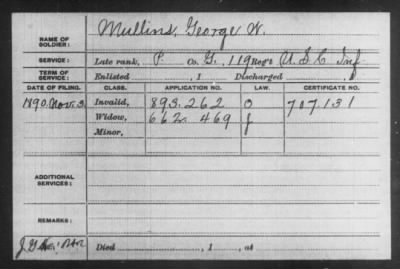 Mullins, George W.
NAME OF SOLDIER:
SERVICE: Late rank, P. Co. G., 119 Reg't U.S.C Inf.
TERM OF SERVICE: Enlisted , 1 Discharged , 1
DATE OF FILING. CLASS. APPLICATION NO. LAW. CERTIFICATE NO.
1890. Nov. 3. Invalid, 893.262 O 707131
Widow, 662.469 J
Minor,
ADDITIONAL SERVICES:
REMARKS:
Died , 1 , at